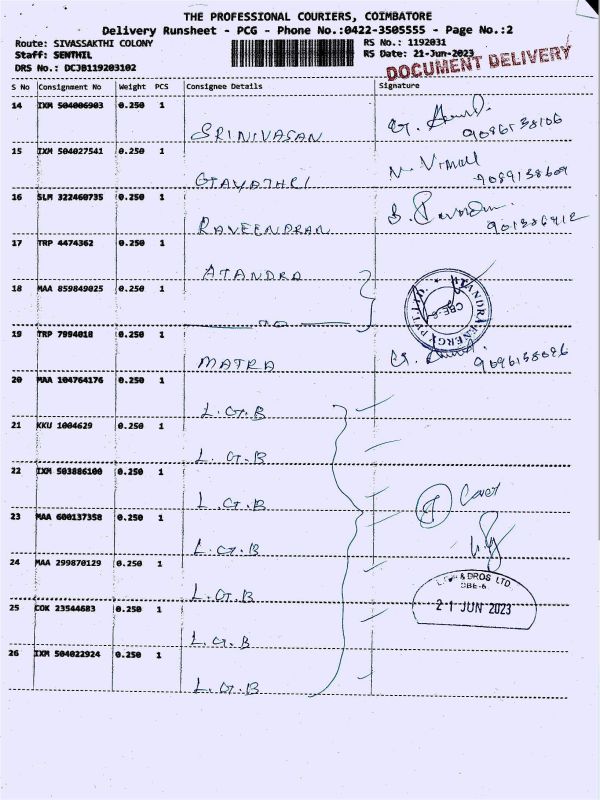 THE PROFESSIONAL COURIERS, COIMBATORE
Delivery Runsheet - PCG - Phone No.:0422-3505555 - Page No.:2
Route: SIVASSAKTHI COLONY RS No.: 1192031
Staff: SENTHIL RS Date: 21-Jun-2023
DRS No.: DCJB119203102
DOCUMENT DELIVERY
S No Consignment No Weight PCS Consignee Details Signature
14 IXM 504006903 0.250 1
SRINIVASAN
15 IXM 504027541 0.250 1
GAYATHRI N. Vimall
16 SLM 322460735 0.250 1
RAVEENDRAN
17 TRP 4474362 0.250 1
ATANDRA
18 MAA 859849025 0.250 1
DO
ATANDRA ENERGY PVT. LTD. CBE-6
19 TRP 7994018 0.250 1
MATRA
20 MAA 104764176 0.250 1
L.G.B
21 KKU 1004629 0.250 1
L.G.B
22 IXM 503886100 0.250 1
L.G.B
23 MAA 600137358 0.250 1
L.G.B
24 MAA 299870129 0.250 1
L.G.B
25 COK 23544683 0.250 1
L.G.B
26 IXM 504022924 0.250 1
L.G.B
& BROS LTD.
CBE-6.
21 JUN 2023